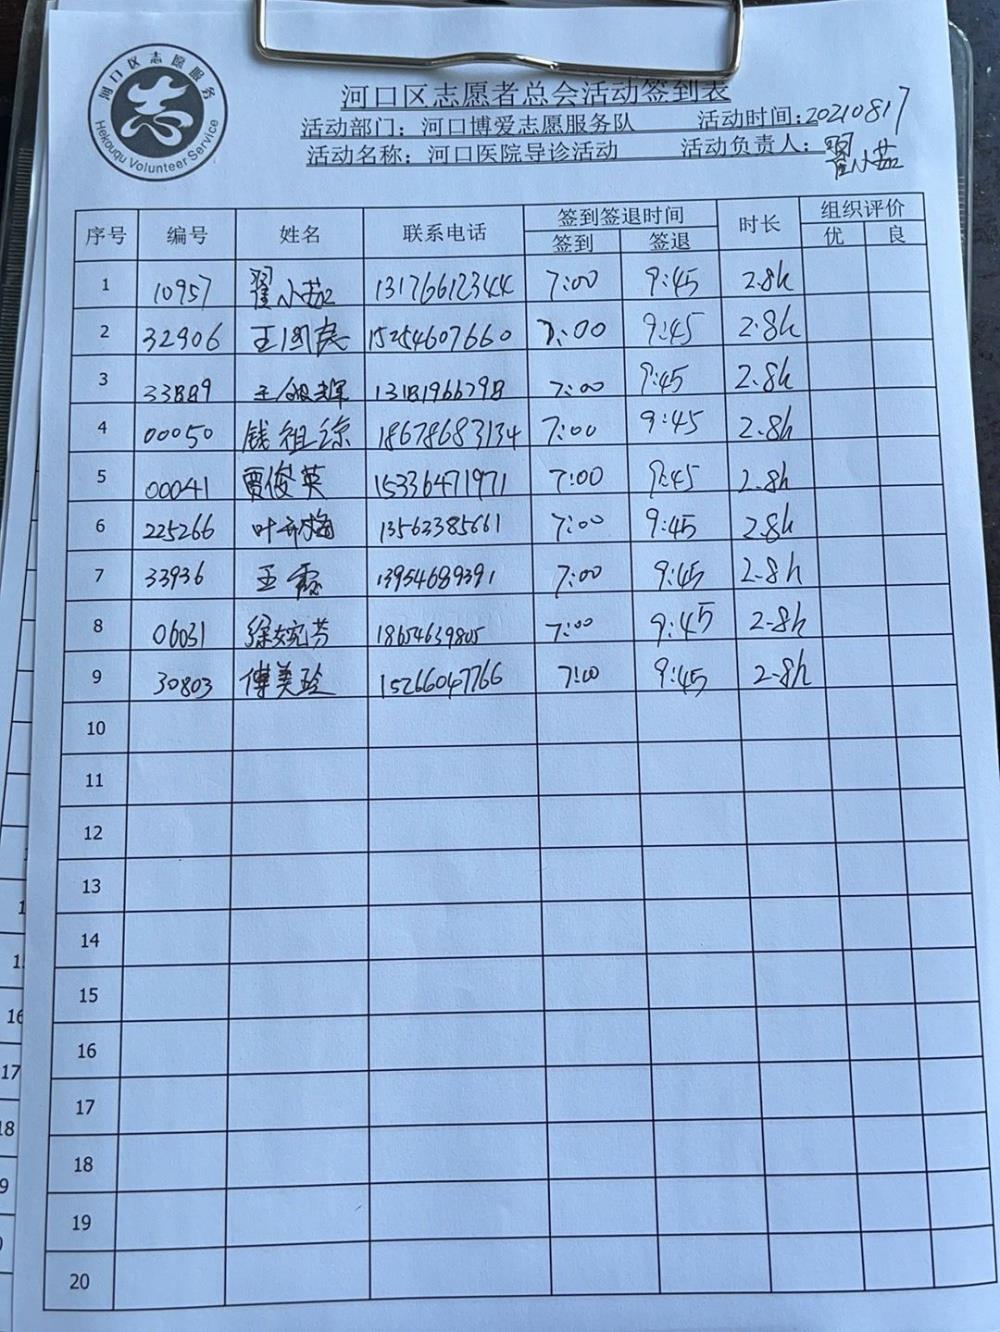 河口区志愿服务
志
Hekouqu Volunteer Service
河口区志愿者总会活动签到表
活动部门：河口博爱志愿服务队 活动时间：20210817
活动名称：河口医院导诊活动 活动负责人：翟小茹
序号 编号 姓名 联系电话 签到签退时间 时长 组织评价
签到 签退 优 良
1 10957 翟小茹 13176612344 7:00 9:45 2.8h
2 32906 王国亮 15254607660 7:00 9:45 2.8h
3 33889 王 13181966798 7:00 9:45 2.8h
4 00050 钱祖琼 18678683134 7:00 9:45 2.8h
5 00041 贾俊英 15336471971 7:00 9:45 2.8h
6 225266 叶 梅 13562385661 7:00 9:45 2.8h
7 33936 王霞 13954689391 7:00 9:45 2.8h
8 06031 徐婉芳 18654639805 7:00 9:45 2.8h
9 30803 傅美玲 15266047766 7:00 9:45 2.8h
10
11
12
13
14
15
16
17
18
19
20